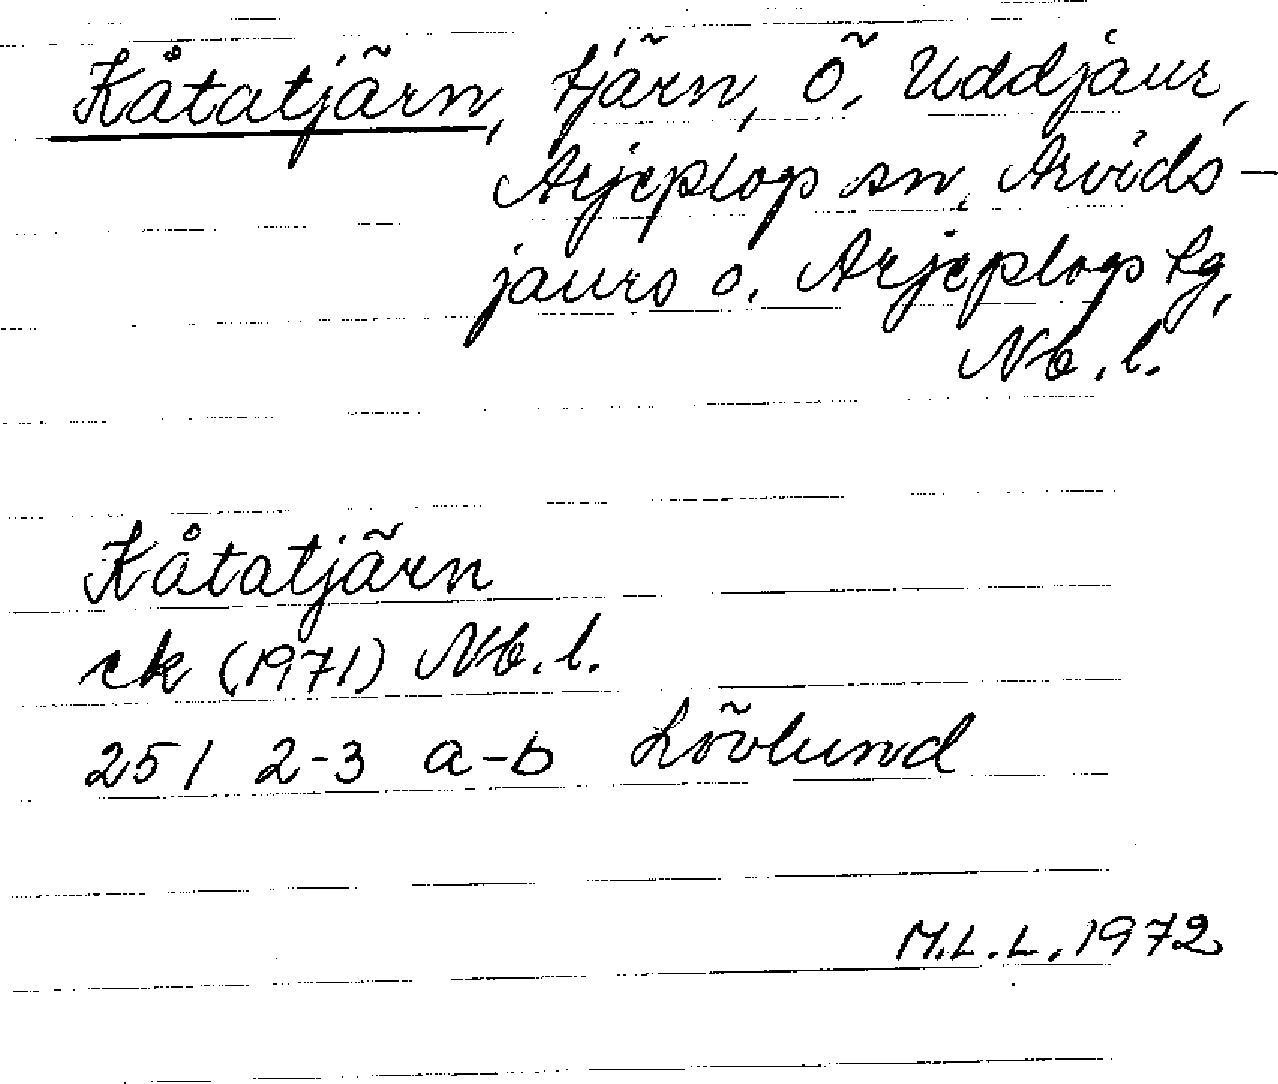 Kåtatjärn, tjärn, Ö. Uddjaur,
Arjeplogs sn, Arvids-
jaurs o. Arjeplogs tg,
Nb. l.
Kåtatjärn
ek (1971) Nb. l.
25 I 2-3 a-b Lövlund
M.L.L. 1972